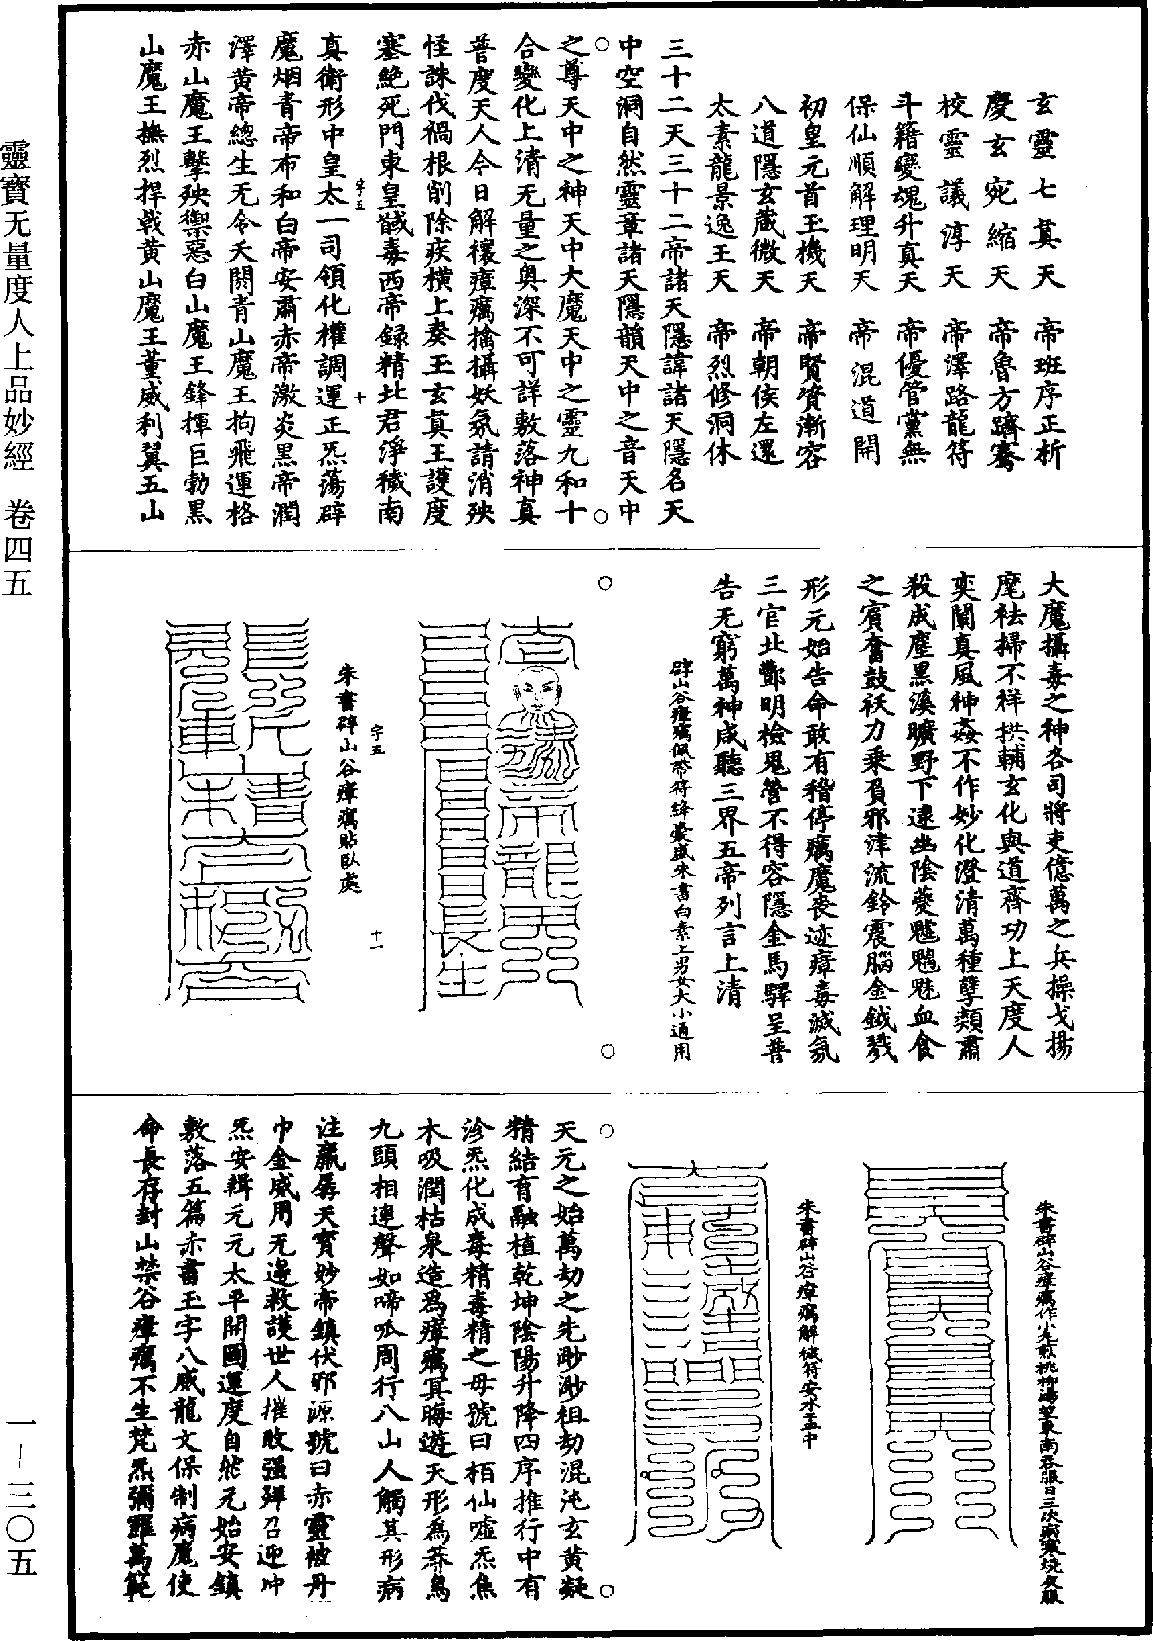 靈寶无量度人上品妙經 卷四五
一—三〇五
玄靈七真天 帝班序正析
慶玄宛縮天 帝魯方躋騫
校靈議淳天 帝澤路龍符
斗籍變魂升真天 帝優管黨無
保仙順解理明天 帝混道開
初皇元首玉機天 帝賢賓漸容
八道隱玄藏微天 帝朝侯左還
太素龍景逸王天 帝烈修洞休
三十二天三十二帝諸天隱諱諸天隱名天
中空洞自然靈章諸天隱韻天中之音天中
之尊天中之神天中大魔天中之靈九和十
合變化上清无量之奥深不可詳敷落神真
普度天人今日解禳瘴癘擒攝妖氛請消殃
怪誅伐禍根削除疾橫上奏玉玄真王護度
塞絶死門東皇馘毒西帝録精北君淨穢南
字五 十
真衛形中皇太一司領化權調運正炁蕩辟
魔烟青帝布和白帝安肅赤帝激炎黑帝潤
澤黄帝總生无令夭閼青山魔王拘飛運格
赤山魔王擊殃禦惡白山魔王鋒揮巨勃黑
山魔王撫烈捍戟黄山魔王董威利翼五山
大魔攝毒之神各司將吏億萬之兵操戈揚
麾祛掃不祥拱輔玄化與道齊功上天度人
奕闡真風神姦不作妙化澄清萬種孽類肅
殺成塵黑溪曠野下逮幽陰夔魖魍魅血食
之賓奮鼓祅力乘負邪津流鈴震腦金鉞戮
形元始告命敢有稽停癘魔喪迹瘴毒滅氛
三官北酆明檢鬼營不得容隱金馬驛呈普
告无窮萬神咸聽三界五帝列言上清
辟山谷瘴癘佩帶符絳囊盛朱書白素上男女大小通用
字五 十一
朱書辟山谷瘴癘貼臥處
朱書辟山谷瘴癘解穢符安水盂中
天元之始萬劫之先渺渺祖劫混沌玄黄凝
精結育融植乾坤陰陽升降四序推行中有
沴炁化成毒精毒精之母號曰栢仙噓炁焦
木吸潤枯泉造爲瘴癘其晦遊天形為莽鳥
九頭相連聲如啼呱周行八山人觸其形病
注羸孱天寳妙帝鎮伏邪源號曰赤靈被丹
巾金威用无邊救護世人摧敗强殫召迎冲
炁安輯元元太平開圖運度自然元始安鎮
敷落五篇赤書玉字八威龍文保制病魔使
命長存封山禁谷瘴癘不生梵炁彌羅萬範